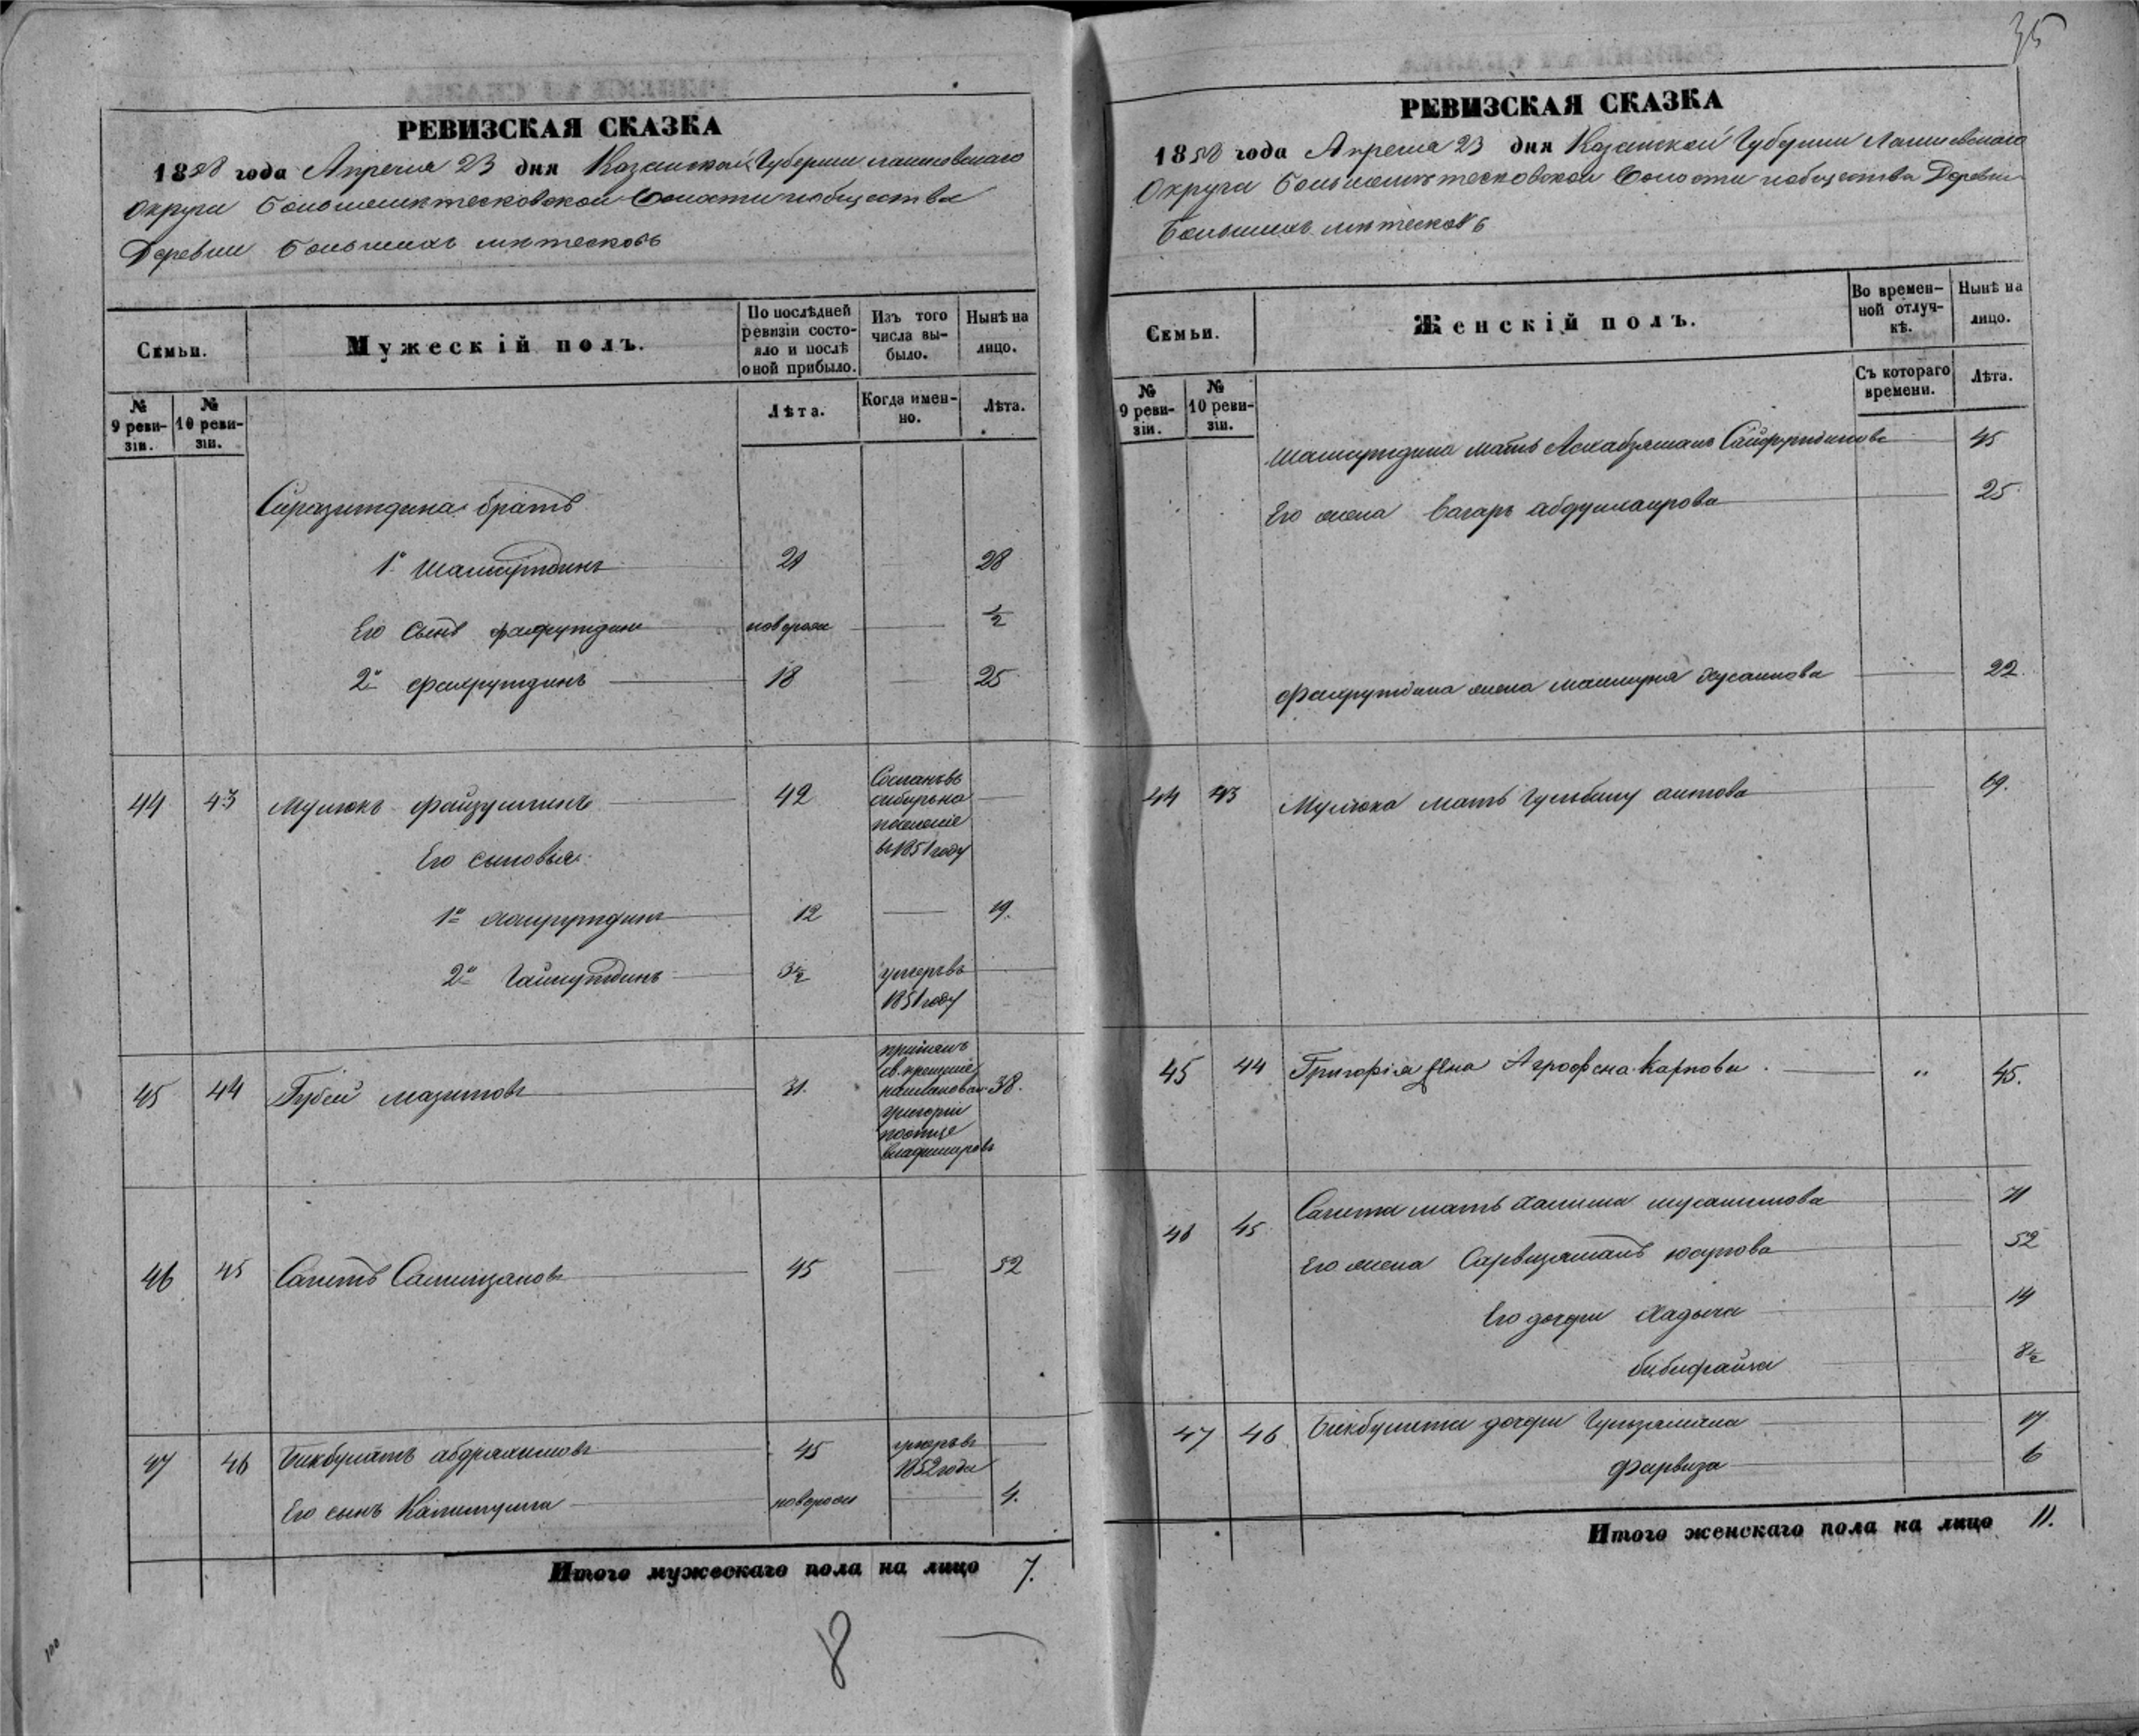 35
РЕВИЗСКАЯ СКАЗКА
1858 года Апреля 23 дня Казанской Губернии Лаишевскаго
Округа Большеметесковской Волости и общества
Деревни Большихъ метесковъ
Семьи.
Мужескій полъ.
По послѣдней ревизіи состояло и послѣ оной прибыло.
Изъ того числа выбыло.
Нынѣ на лицо.
№ 9 ревизіи.
№ 10 ревизіи.
Лѣта.
Когда именно.
Лѣта.
Сиразитдина братъ
1й Шамсутдинъ 21 28
Его Сынъ новорож 1/2
2й Фахрутдинъ 18 25
44 43 Мулюкъ Файзуллинъ 42 Сосланъ въ
сибирь на
поселеніе
въ 1851 году
Его сыновья:
1й 12 19.
2й 3 1/2 умеръ въ
1851 году
45 44 Губей Мазитовъ 31. принялъ
св. крещеніе
наименован 38.
григорій
по отце
Владимировъ
46 45 Сагитъ 45 52
47 46 Бикбулатъ абдрахимовъ 45 умеръ въ
1852 году
Его сынъ Калимулла новорож 4.
Итого мужескаго пола на лицо 7.
8
100
РЕВИЗСКАЯ СКАЗКА
1858 года Апреля 23 дня Казанской Губернии Лаишевскаго
Округа Большеметесковской Волости и общества Деревни
Большихъ метесковъ
Семьи.
Женскій полъ.
Во временной отлучкѣ.
Нынѣ на лицо.
№ 9 ревизіи.
№ 10 ревизіи.
Съ котораго времени.
Лѣта.
Шамсутдина мать Сайфутдинова 45
Его жена 25
Фахрутдина жена Хусаинова 22.
44 43 Мулюка мать Гульбану аитова 69.
45 44 Григорія жена Агрофена Карпова „ 45.
46 45 Сагита мать Халима 71
Его жена юсупова 52
Его дочери Хадыча 14
бибифайза 8 1/2
47 46 Бикбулата дочери 17
Фарвиза 6
Итого женскаго пола на лицо 11.